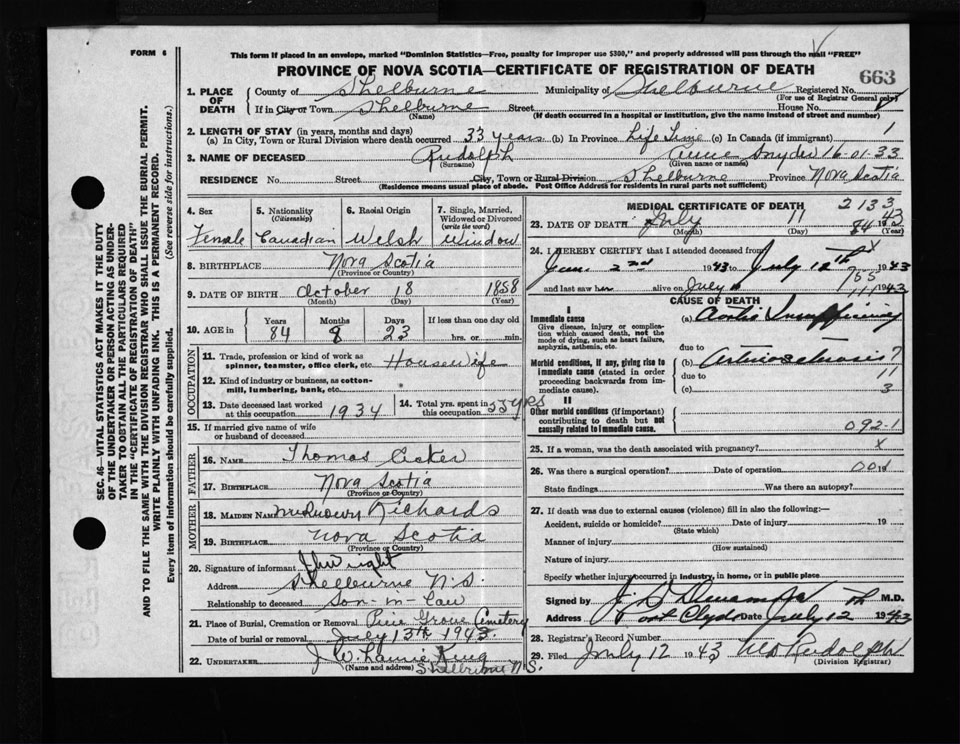 FORM 6
This form if placed in an envelope, marked "Dominion Statistics—Free, penalty for improper use $300," and properly addressed will pass through the mail "FREE"
PROVINCE OF NOVA SCOTIA—CERTIFICATE OF REGISTRATION OF DEATH
663
1. PLACE OF DEATH
County of Shelburne Municipality of Shelburne Registered No.
(For use of Registrar General only)
If in City or Town Shelburne Street House No.
(Name) (If death occurred in a hospital or institution, give the name instead of street and number)
2. LENGTH OF STAY (in years, months and days)
(a) In City, Town or Rural Division where death occurred 33 years (b) In Province Life Time (c) In Canada (if immigrant) 1
3. NAME OF DECEASED Rudolph Annie Snyder 16-01-33
(Surname) (Given name or names)
RESIDENCE No. Street City, Town or Rural Division Shelburne Province Nova Scotia
(Residence means usual place of abode. Post Office Address for residents in rural parts not sufficient)
4. Sex Female
5. Nationality (Citizenship) Canadian
6. Racial Origin Welsh
7. Single, Married, Widowed or Divorced (write the word) Window
8. BIRTHPLACE Nova Scotia
(Province or Country)
9. DATE OF BIRTH October 18 1858
(Month) (Day) (Year)
10. AGE in Years Months Days If less than one day old
84 8 23 hrs. or min.
11. Trade, profession or kind of work as spinner, teamster, office clerk, etc. Housewife
12. Kind of industry or business, as cotton-mill, lumbering, bank, etc.
13. Date deceased last worked at this occupation 1934
14. Total yrs. spent in this occupation 55 yrs
15. If married give name of wife or husband of deceased
FATHER
16. NAME Thomas
17. BIRTHPLACE Nova Scotia
(Province or Country)
MOTHER
18. MAIDEN NAME unknown Richards
19. BIRTHPLACE Nova Scotia
(Province or Country)
20. Signature of informant
Address Shelburne N.S.
Relationship to deceased Son-in-law
21. Place of Burial, Cremation or Removal Pine Grove Cemetery
Date of burial or removal July 13th 1943
22. UNDERTAKER J.W. King
(Name and address) Shelburne N.S.
MEDICAL CERTIFICATE OF DEATH 2 13 3
23. DATE OF DEATH July 11 43
(Month) (Day) (Year)
84
24. I HEREBY CERTIFY that I attended deceased from
June 2nd 1943 to July 12th 1943
and last saw her alive on July 11 1943
CAUSE OF DEATH
I
Immediate cause
Give disease, injury or complication which caused death, not the mode of dying, such as heart failure, asphyxia, asthenia, etc.
(a) Aortic Insufficiency
due to
Morbid conditions, if any, giving rise to immediate cause (stated in order proceeding backwards from immediate cause).
(b) Arteriosclerosis 7
due to 11
(c) 3
II
Other morbid conditions (if important) contributing to death but not causally related to immediate cause.
092-1
25. If a woman, was the death associated with pregnancy? X
26. Was there a surgical operation? Date of operation
State findings Was there an autopsy?
27. If death was due to external causes (violence) fill in also the following:—
Accident, suicide or homicide? Date of injury 19
(State which)
Manner of injury
(How sustained)
Nature of injury
Specify whether injury occurred in industry, in home, or in public place
Signed by M.D.
Port Clyde Date July 12 1943
28. Registrar's Record Number
29. Filed July 12 1943 Rudolph
(Division Registrar)
SEC. 46—VITAL STATISTICS ACT MAKES IT THE DUTY
OF THE UNDERTAKER OR PERSON ACTING AS UNDER-
TAKER TO OBTAIN ALL THE PARTICULARS REQUIRED
IN THE "CERTIFICATE OF REGISTRATION OF DEATH"
AND TO FILE THE SAME WITH THE DIVISION REGISTRAR WHO SHALL ISSUE THE BURIAL PERMIT.
WRITE PLAINLY WITH UNFADING INK. THIS IS A PERMANENT RECORD.
Every item of information should be carefully supplied. (See reverse side for instructions.)